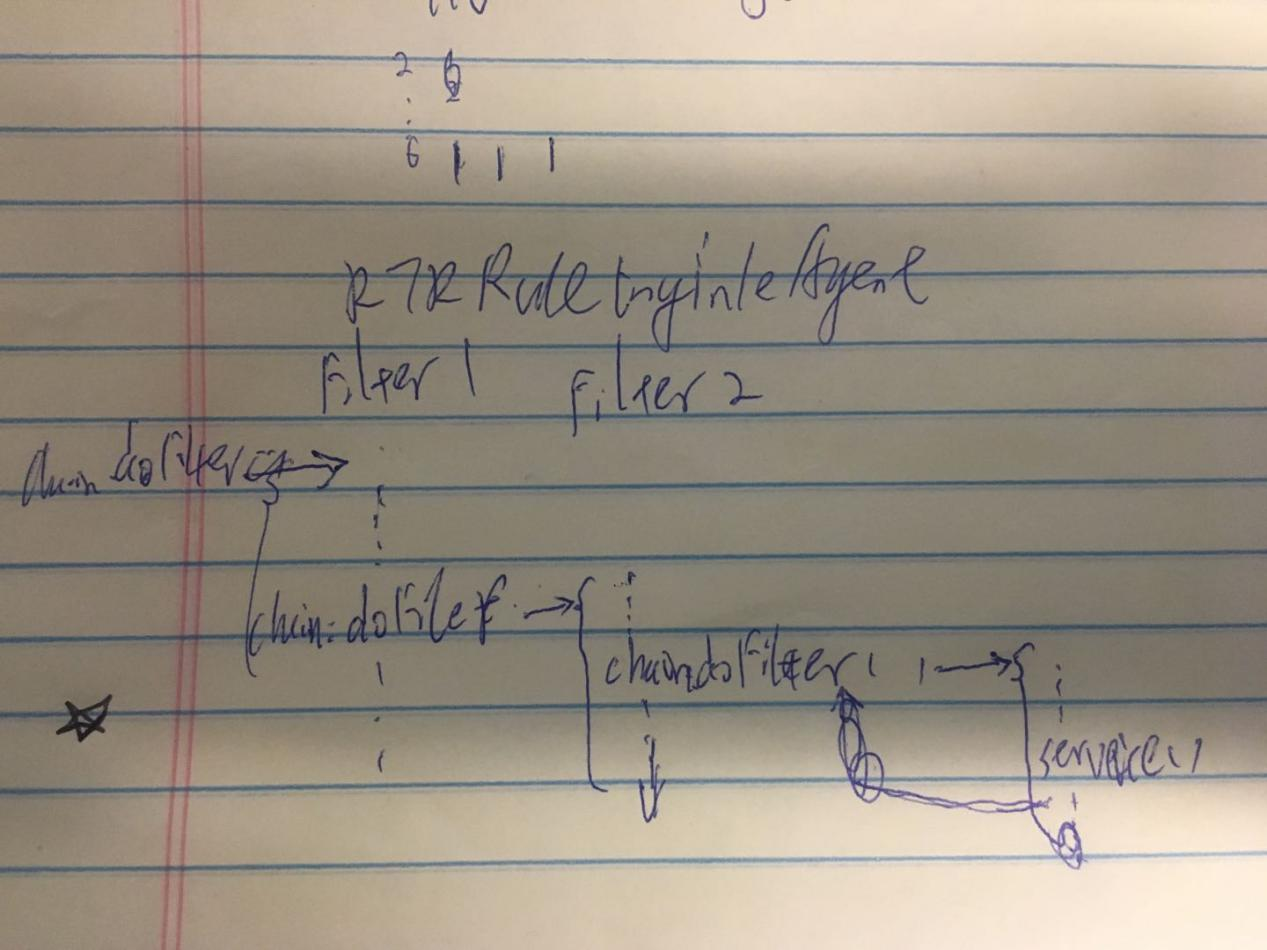 2
6 | | |
Rule Agent
Filter 1 Filter 2
chain doFilter →
chain. doFilet →
chain.doFilter( ) →
service()